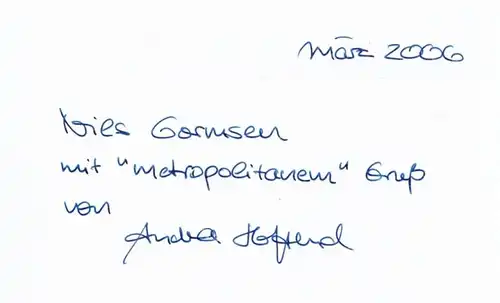 März 2006
Niels Gormsen
mit "metropolitanem" Gruß
von
Andrea Hoffend